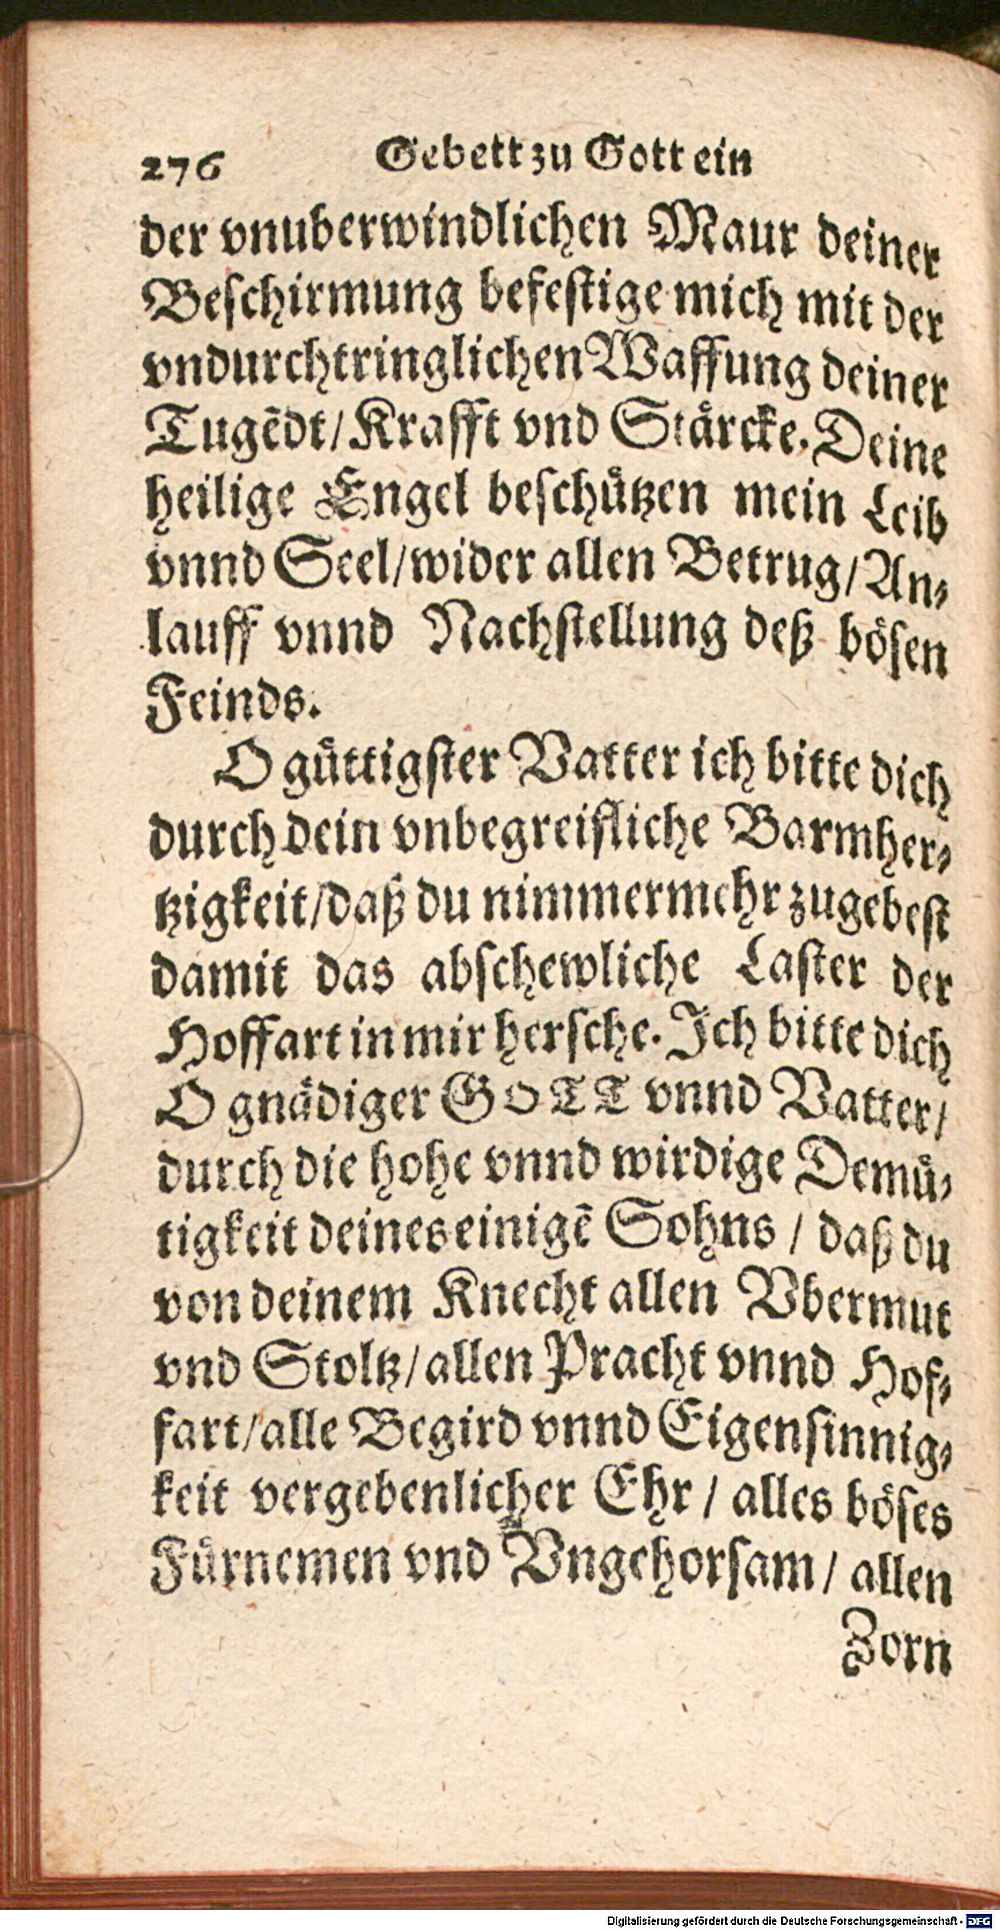 276 Gebett zu Gott ein
der vnuberwindlichen Maur deiner
Beschirmung befestige mich mit der
vndurchtringlichen Waffung deiner
Tugẽdt/ Krafft vnd Stårcke. Deine
heilige Engel beschůtzen mein Leib
vnnd Seel/ wider allen Betrug/ An-
lauff vnnd Nachstellung deß bösen
Feinds.
O gůttigster Vatter ich bitte dich
durch dein vnbegreifliche Barmher-
tzigkeit/ daß du nimmermehr zugebest
damit das abschewliche Laster der
Hoffart in mir hersche. Ich bitte dich
O gnådiger GOTT vnnd Vatter/
durch die hohe vnnd wirdige Demů-
tigkeit deines einigẽ Sohns / daß du
von deinem Knecht allen Vbermut
vnd Stoltz/ allen Pracht vnnd Hof-
fart/ alle Begird vnnd Eigensinnig-
keit vergebenlicher Ehr / alles böses
Fůrnemen vnd Vngehorsam / allen
Zorn
Digitalisierung gefördert durch die Deutsche Forschungsgemeinschaft - DFG